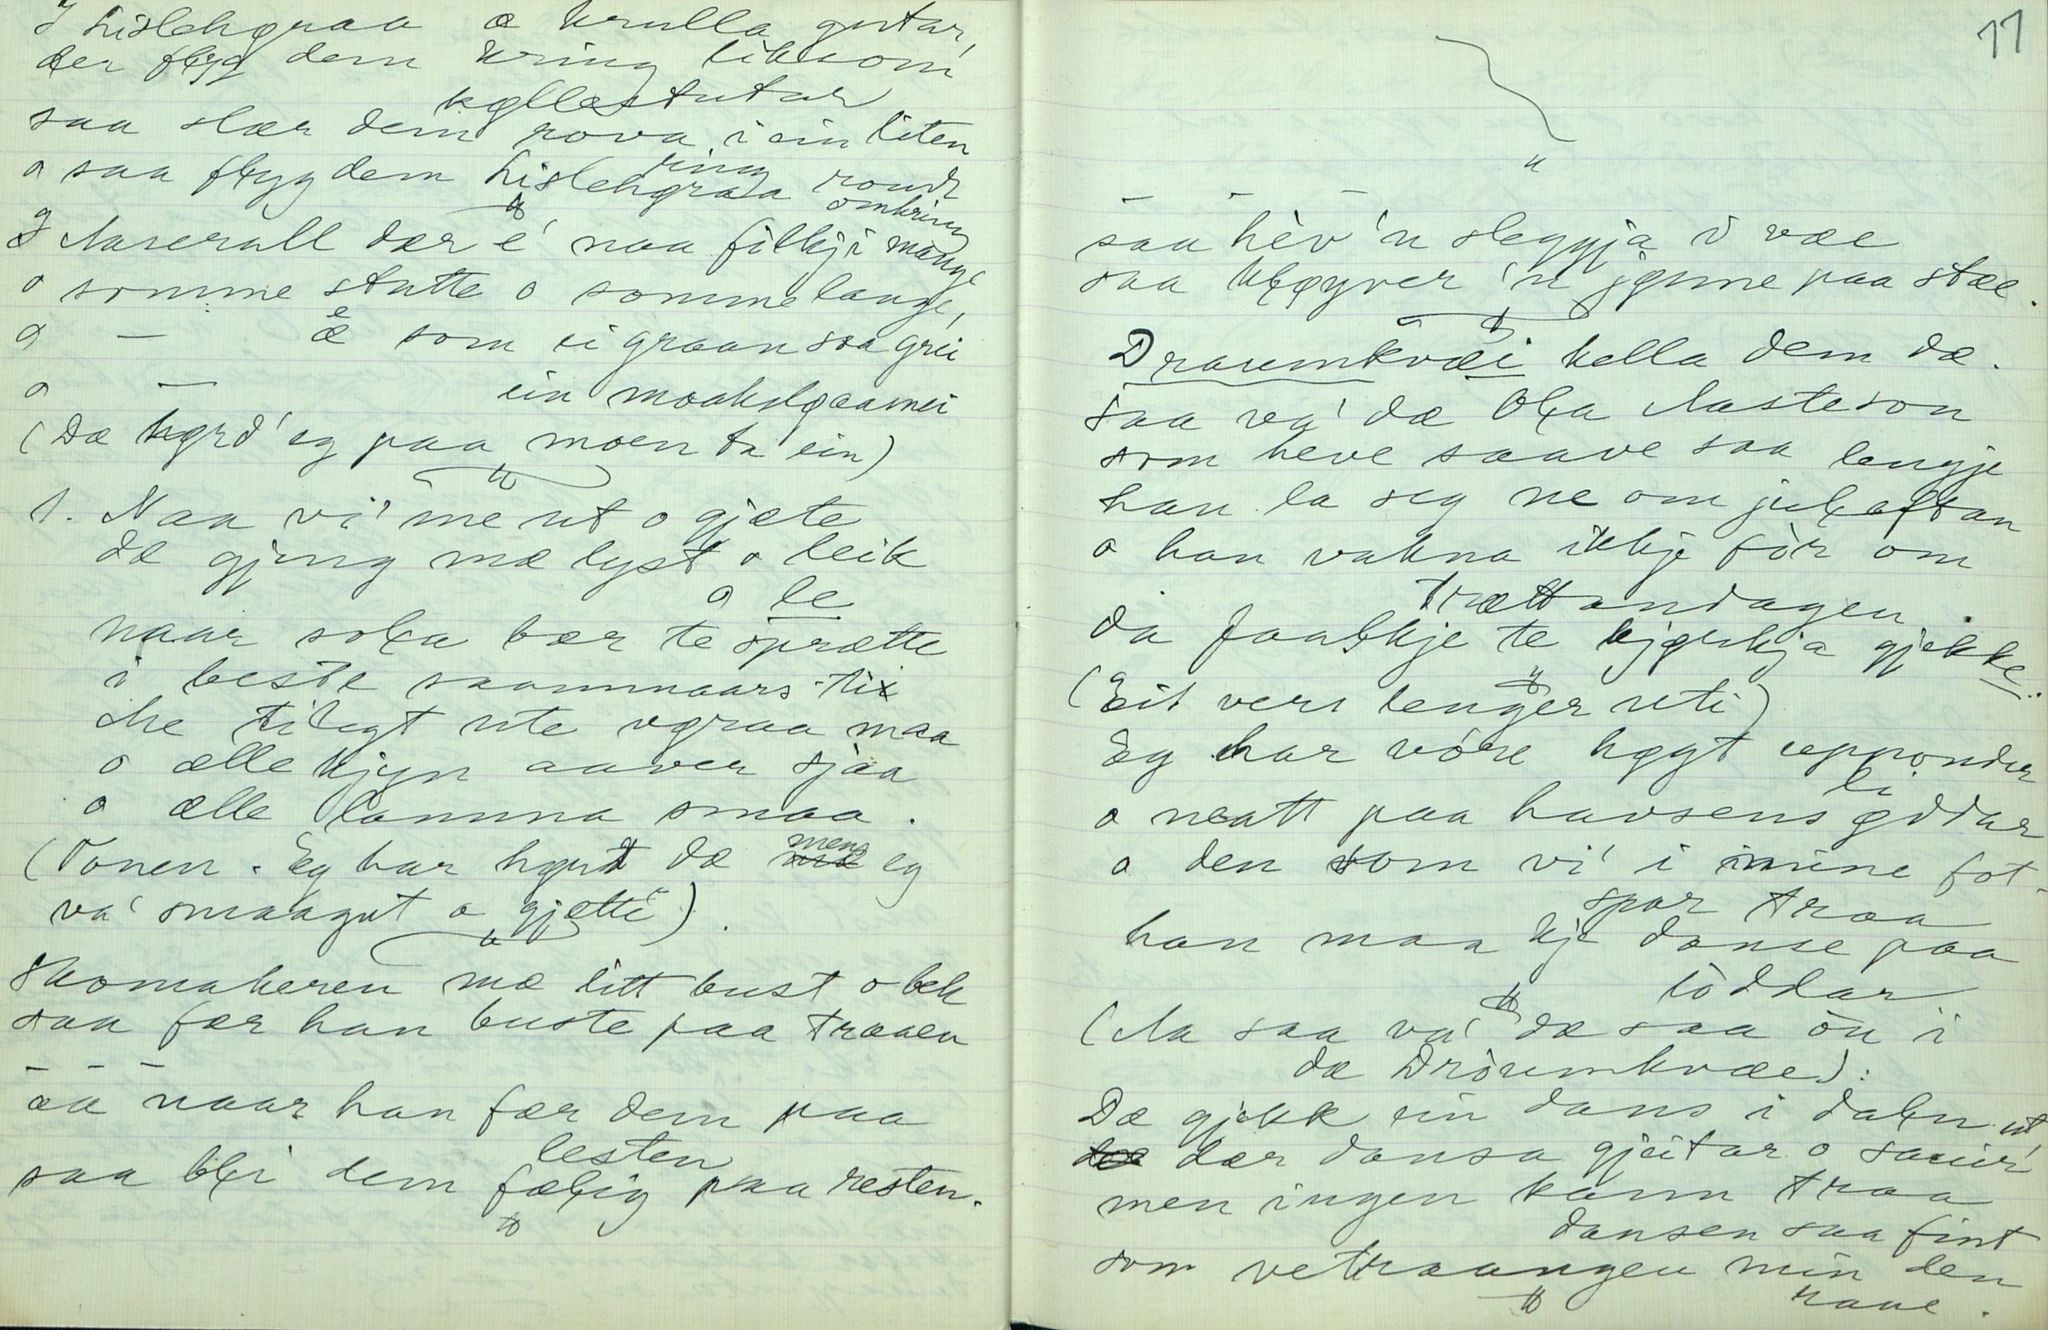 I Lislehgraa æ krulla gutar,
der flyg dem kring liksom
køllestutar
saa slær dem rova i ein liten
ring
o saa flyg dem Lislehgraa rondt
omkring
I Aaserall dær é naa filkji mange
o somme stutte o somme lange,
o — æ som ei graan saa grei
o — ein
(Dæ hørd' eg paa moen ta ein)
1. Naa vi' me ut o gjæte
dæ gjeng mæ lyst o leik
o le
naar sola bær te sprætte
i beste saammaars-ti
Me tilegt ute vøraa maa
o ælle kjyn aaver sjaa
o ælle lamma smaa.
(Tonen. Eg har hørt dæ mens eg
va' smaagut o gjætte).
Skomakeren mæ litt bust o bek
saa fær han buste paa traaen
— — —
aa naar han fær dem paa
lesten
saa bli dem fælig paa resten.
11
— — —
saa hèv'n sleggja i væe
saa kløyver 'n jønne paa stæe.
Draumkvæi kella dem dæ.
saa va' dæ Ola Aasteson
som heve saave saa lengje
han la seg ne om julaftan
o han vakna ikkje fòr om
trættandagen.
da faalkje te kjørkja gjekke.
(Eit vers lenger uti)
Eg har vóre høgt upponder
li
o neatt paa havsens øddar
o den som vi' i mine fot-
spor traa
han maa kje danse paa
löddar
(Aa saa va' dæ saa òn i
dæ Dròumkvæe):
Dæ gjekk ein dans i dalen ut
dær dansa gjeitar o sauir
men ingen kann traa
dansen saa fint
som vetraangen min den
haue.